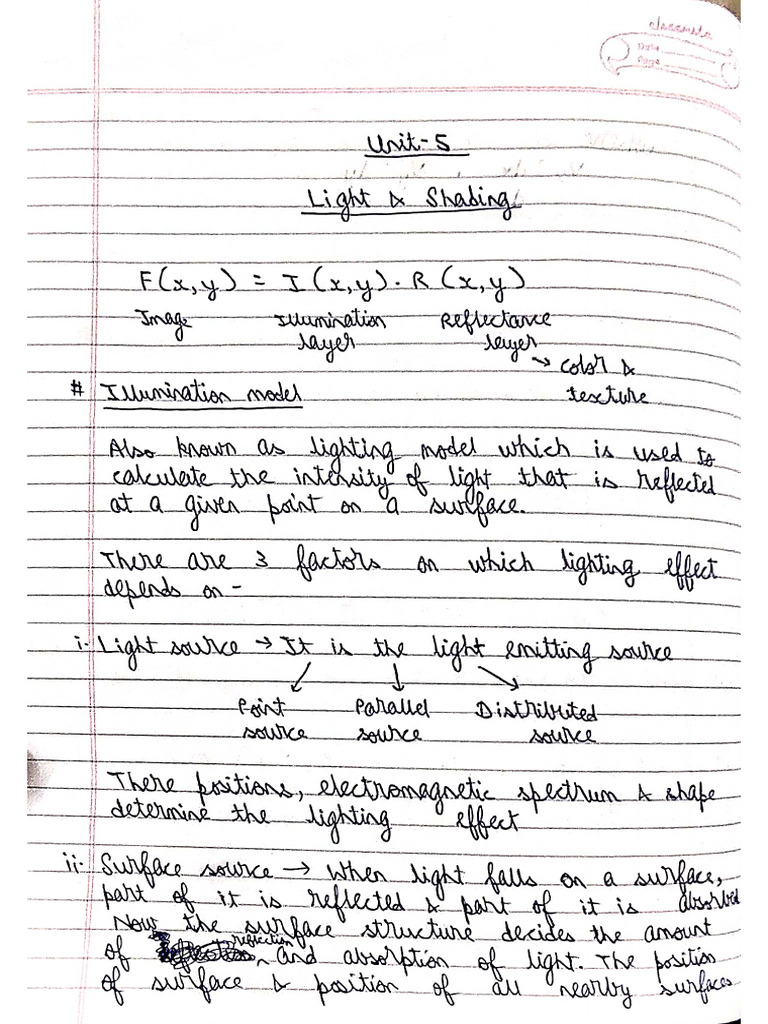 classmate
Date
Page
Unit-5
Light & Shading
F(x,y) = I(x,y) . R(x,y)
Image Illumination Reflectance
layer layer
→ color &
texture
# Illumination model
Also known as lighting model which is used to
calculate the intensity of light that is reflected
at a given point on a surface.
There are 3 factors on which lighting effect
depends on -
i- Light source → It is the light emitting source
Point Parallel Distributed
source source source
There positions, electromagnetic spectrum & shape
determine the lighting effect
ii- Surface source → When light falls on a surface,
part of it is reflected & part of it is absorbed
Now the surface structure decides the amount
of reflection and absorption of light. The position
of surface & position of all nearby surfaces